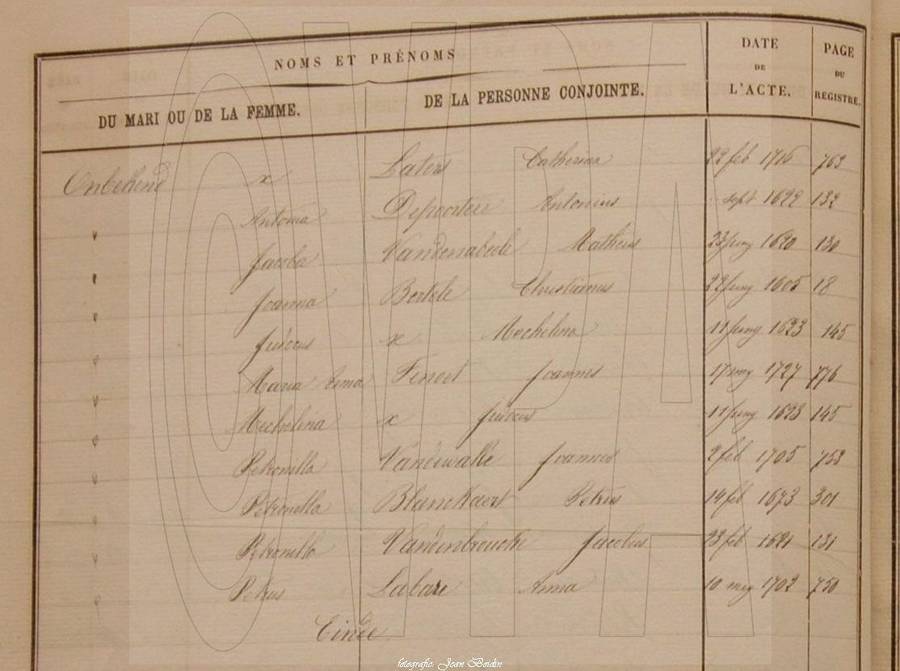 NOMS ET PRÉNOMS
DU MARI OU DE LA FEMME.
DE LA PERSONNE CONJOINTE.
DATE DE L'ACTE.
PAGE DU REGISTRE.
Onbekend x Laters Catherina 22 feb 1716 763
" Antonia Depoortere Antonius sept 1622 132
" Jacoba Vandenabeele Matheus 1620 130
" Joanna Bertele Christianus 1605 18
" Judocus x Mechelina 11 1623 145
" Maria Anna Joannes 17 1727 776
" Mechelina x Judocus 11 1623 145
" Petronilla Vandewalle Joannes 2 feb 1705 753
" Petronilla Blanckaert Petrus 14 feb 1673 301
" Petronilla Vandenbrouche Jacobus 23 feb 1621 131
" Petrus Labare Anna 10 1702 750
Einde
fotografie: Joan Beidin